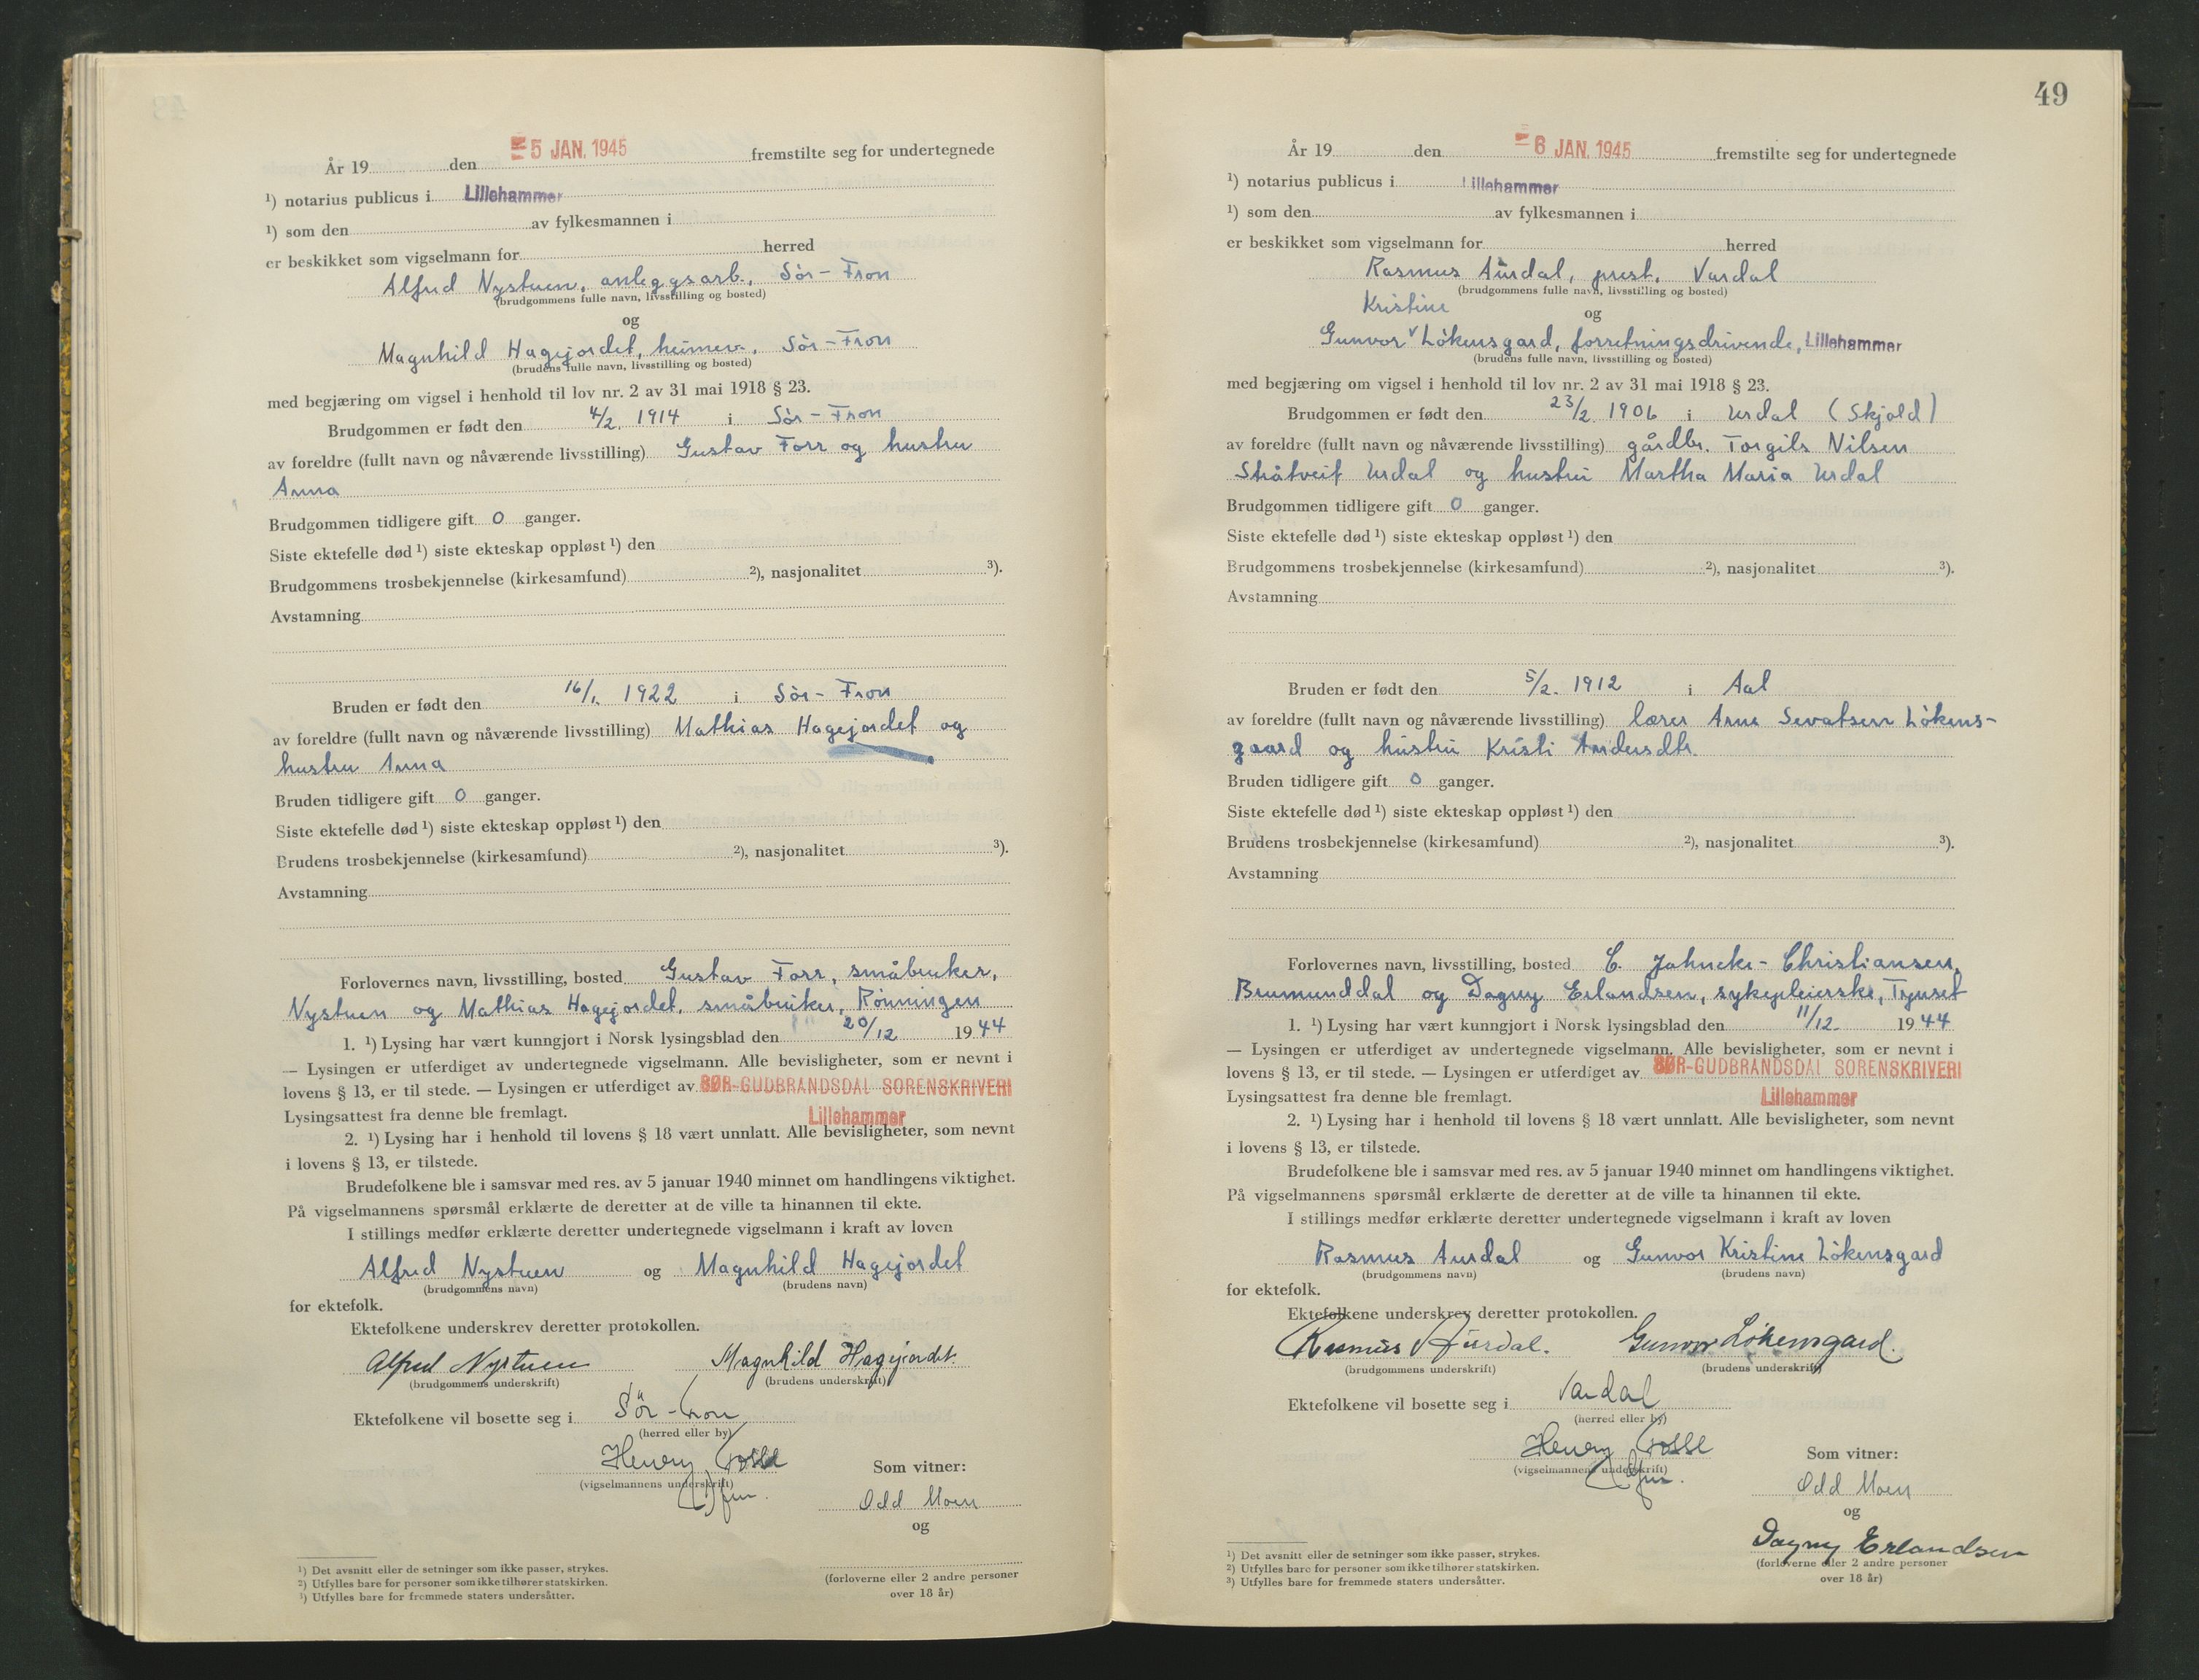 År 19 den 5 JAN. 1945 fremstilte seg for undertegnede
¹) notarius publicus i Lillehammer
¹) som den av fylkesmannen i
er beskikket som vigselmann for herred
Alfred Nystuen, anleggsarb., Sör-Fron
(brudgommens fulle navn, livsstilling og bosted)
og
Magnhild Hagejordet, heimev., Sör-Fron
(brudens fulle navn, livsstilling og bosted)
med begjæring om vigsel i henhold til lov nr. 2 av 31 mai 1918 § 23.
Brudgommen er født den 4/2. 1914 i Sör-Fron
av foreldre (fullt navn og nåværende livsstilling) Gustav Forr og hustru
Anna
Brudgommen tidligere gift 0 ganger.
Siste ektefelle død ¹) siste ekteskap oppløst ¹) den
Brudgommens trosbekjennelse (kirkesamfund) ²), nasjonalitet ³).
Avstamning
Bruden er født den 16/1. 1922 i Sör-Fron
av foreldre (fullt navn og nåværende livsstilling) Mathias Hagejordet og
hustru Anna
Bruden tidligere gift 0 ganger.
Siste ektefelle død ¹) siste ekteskap oppløst ¹) den
Brudens trosbekjennelse (kirkesamfund) ²), nasjonalitet ³).
Avstamning
Forlovernes navn, livsstilling, bosted Gustav Forr, småbruker,
Nystuen og Mathias Hagejordet, småbruker, Rönningen
1. ¹) Lysing har vært kunngjort i Norsk lysingsblad den 20/12 1944
— Lysingen er utferdiget av undertegnede vigselmann. Alle bevisligheter, som er nevnt i
lovens § 13, er til stede. — Lysingen er utferdiget av SØR-GUDBRANDSDAL SORENSKRIVERI
Lysingsattest fra denne ble fremlagt. Lillehammer
2. ¹) Lysing har i henhold til lovens § 18 vært unnlatt. Alle bevisligheter, som nevnt
i lovens § 13, er tilstede.
Brudefolkene ble i samsvar med res. av 5 januar 1940 minnet om handlingens viktighet.
På vigselmannens spørsmål erklærte de deretter at de ville ta hinannen til ekte.
I stillings medfør erklærte deretter undertegnede vigselmann i kraft av loven
Alfred Nystuen og Magnhild Hagejordet
(brudgommens navn) (brudens navn)
for ektefolk.
Ektefolkene underskrev deretter protokollen.
Alfred Nystuen Magnhild Hagejordet.
(brudgommens underskrift) (brudens underskrift)
Ektefolkene vil bosette seg i Sör-Fron
(herred eller by)
Henry
(vigselmannens underskrift)
Som vitner:
Odd Moen
og
(forloverne eller 2 andre personer
over 18 år)
¹) Det avsnitt eller de setninger som ikke passer, strykes.
²) Utfylles bare for personer som ikke tilhører statskirken.
³) Utfylles bare for fremmede staters undersåtter.
49
År 19 den 6 JAN. 1945 fremstilte seg for undertegnede
¹) notarius publicus i Lillehammer
¹) som den av fylkesmannen i
er beskikket som vigselmann for herred
Rasmus Aurdal, prest, Vardal
(brudgommens fulle navn, livsstilling og bosted)
Kristine
og
Gunvor v Lökensgard, forretningsdrivende, Lillehammer
(brudens fulle navn, livsstilling og bosted)
med begjæring om vigsel i henhold til lov nr. 2 av 31 mai 1918 § 23.
Brudgommen er født den 23/2. 1906 i Urdal (Skjold)
av foreldre (fullt navn og nåværende livsstilling) gårdbr. Torgils Nilsen
Stråtveit Urdal og hustru Martha Maria Urdal
Brudgommen tidligere gift 0 ganger.
Siste ektefelle død ¹) siste ekteskap oppløst ¹) den
Brudgommens trosbekjennelse (kirkesamfund) ²), nasjonalitet ³).
Avstamning
Bruden er født den 5/2. 1912 i Aal
av foreldre (fullt navn og nåværende livsstilling) lærer Arne Sevatsen Lökens-
gaard og hustru Kristi Andersdtr.
Bruden tidligere gift 0 ganger.
Siste ektefelle død ¹) siste ekteskap oppløst ¹) den
Brudens trosbekjennelse (kirkesamfund) ²), nasjonalitet ³).
Avstamning
Forlovernes navn, livsstilling, bosted C. Jahncke-Christiansen,
Brumunddal og Dagny Erlandsen, sykepleierske, Tynset
1. ¹) Lysing har vært kunngjort i Norsk lysingsblad den 11/12. 1944
— Lysingen er utferdiget av undertegnede vigselmann. Alle bevisligheter, som er nevnt i
lovens § 13, er til stede. — Lysingen er utferdiget av SØR-GUDBRANDSDAL SORENSKRIVERI
Lysingsattest fra denne ble fremlagt. Lillehammer
2. ¹) Lysing har i henhold til lovens § 18 vært unnlatt. Alle bevisligheter, som nevnt
i lovens § 13, er tilstede.
Brudefolkene ble i samsvar med res. av 5 januar 1940 minnet om handlingens viktighet.
På vigselmannens spørsmål erklærte de deretter at de ville ta hinannen til ekte.
I stillings medfør erklærte deretter undertegnede vigselmann i kraft av loven
Rasmus Aurdal og Gunvor Kristine Lökensgard
(brudgommens navn) (brudens navn)
for ektefolk.
Ektefolkene underskrev deretter protokollen.
Rasmus Aurdal. Gunvor Lökensgard.
(brudgommens underskrift) (brudens underskrift)
Ektefolkene vil bosette seg i Vardal
(herred eller by)
Henry
(vigselmannens underskrift)
Som vitner:
Odd Moen
og
Dagny Erlandsen
(forloverne eller 2 andre personer
over 18 år)
¹) Det avsnitt eller de setninger som ikke passer, strykes.
²) Utfylles bare for personer som ikke tilhører statskirken.
³) Utfylles bare for fremmede staters undersåtter.